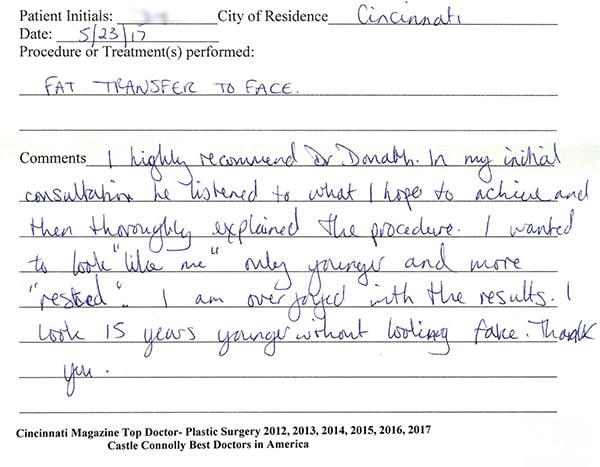 Patient Initials: City of Residence Cincinnati
Date: 5/23/17
Procedure or Treatment(s) performed:
FAT TRANSFER TO FACE.
Comments I highly recommend Dr Donath. In my initial
consultation he listened to what I hope to achieve and
then thoroughly explained the procedure. I wanted
to look "like me" only younger and more
"rested". I am overjoyed with the results. I
look 15 years younger without looking fake. Thank
you.
Cincinnati Magazine Top Doctor- Plastic Surgery 2012, 2013, 2014, 2015, 2016, 2017
Castle Connolly Best Doctors in America